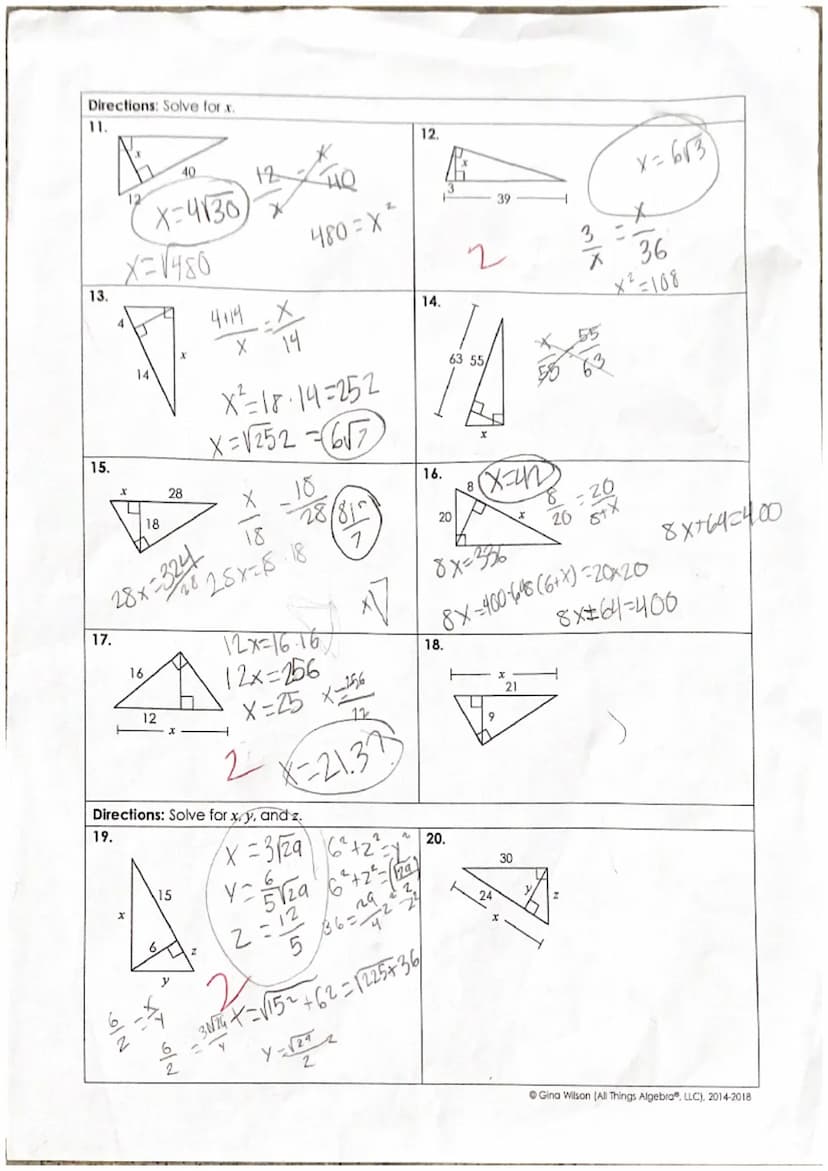 Directions: Solve for x.
11.
x
40
12
12/x = x/40
x=4√30
480 = x²
x=√480
12.
x
3
39
x=6√3
3/x = x/36
x²=108
2
13.
4
x
14
4+14/x = x/14
x²=18·14=252
x=√252 = 6√7
14.
63 55
x
x/55 55/63
15.
x 28
18
x/18 = 18/28
28x=324/28
16.
8
x=42
20
x
8/20 = 20/8+x
8x+64=400
8x=336
8x±64=400
17.
16
12
x
12x=16·16
12x=256
x=25 x=256/12
2
x=21.3
18.
x
21
9
Directions: Solve for x, y, and z.
19.
15
x
6
z
y
x=3√29
y=6/5√29
z=12/5
6²+z²=y²
2
x=√15²+62=√225+36
6/z = x/y
y=√29/2
20.
30
24
y
z
x
© Gina Wilson (All Things Algebra®, LLC), 2014-2018